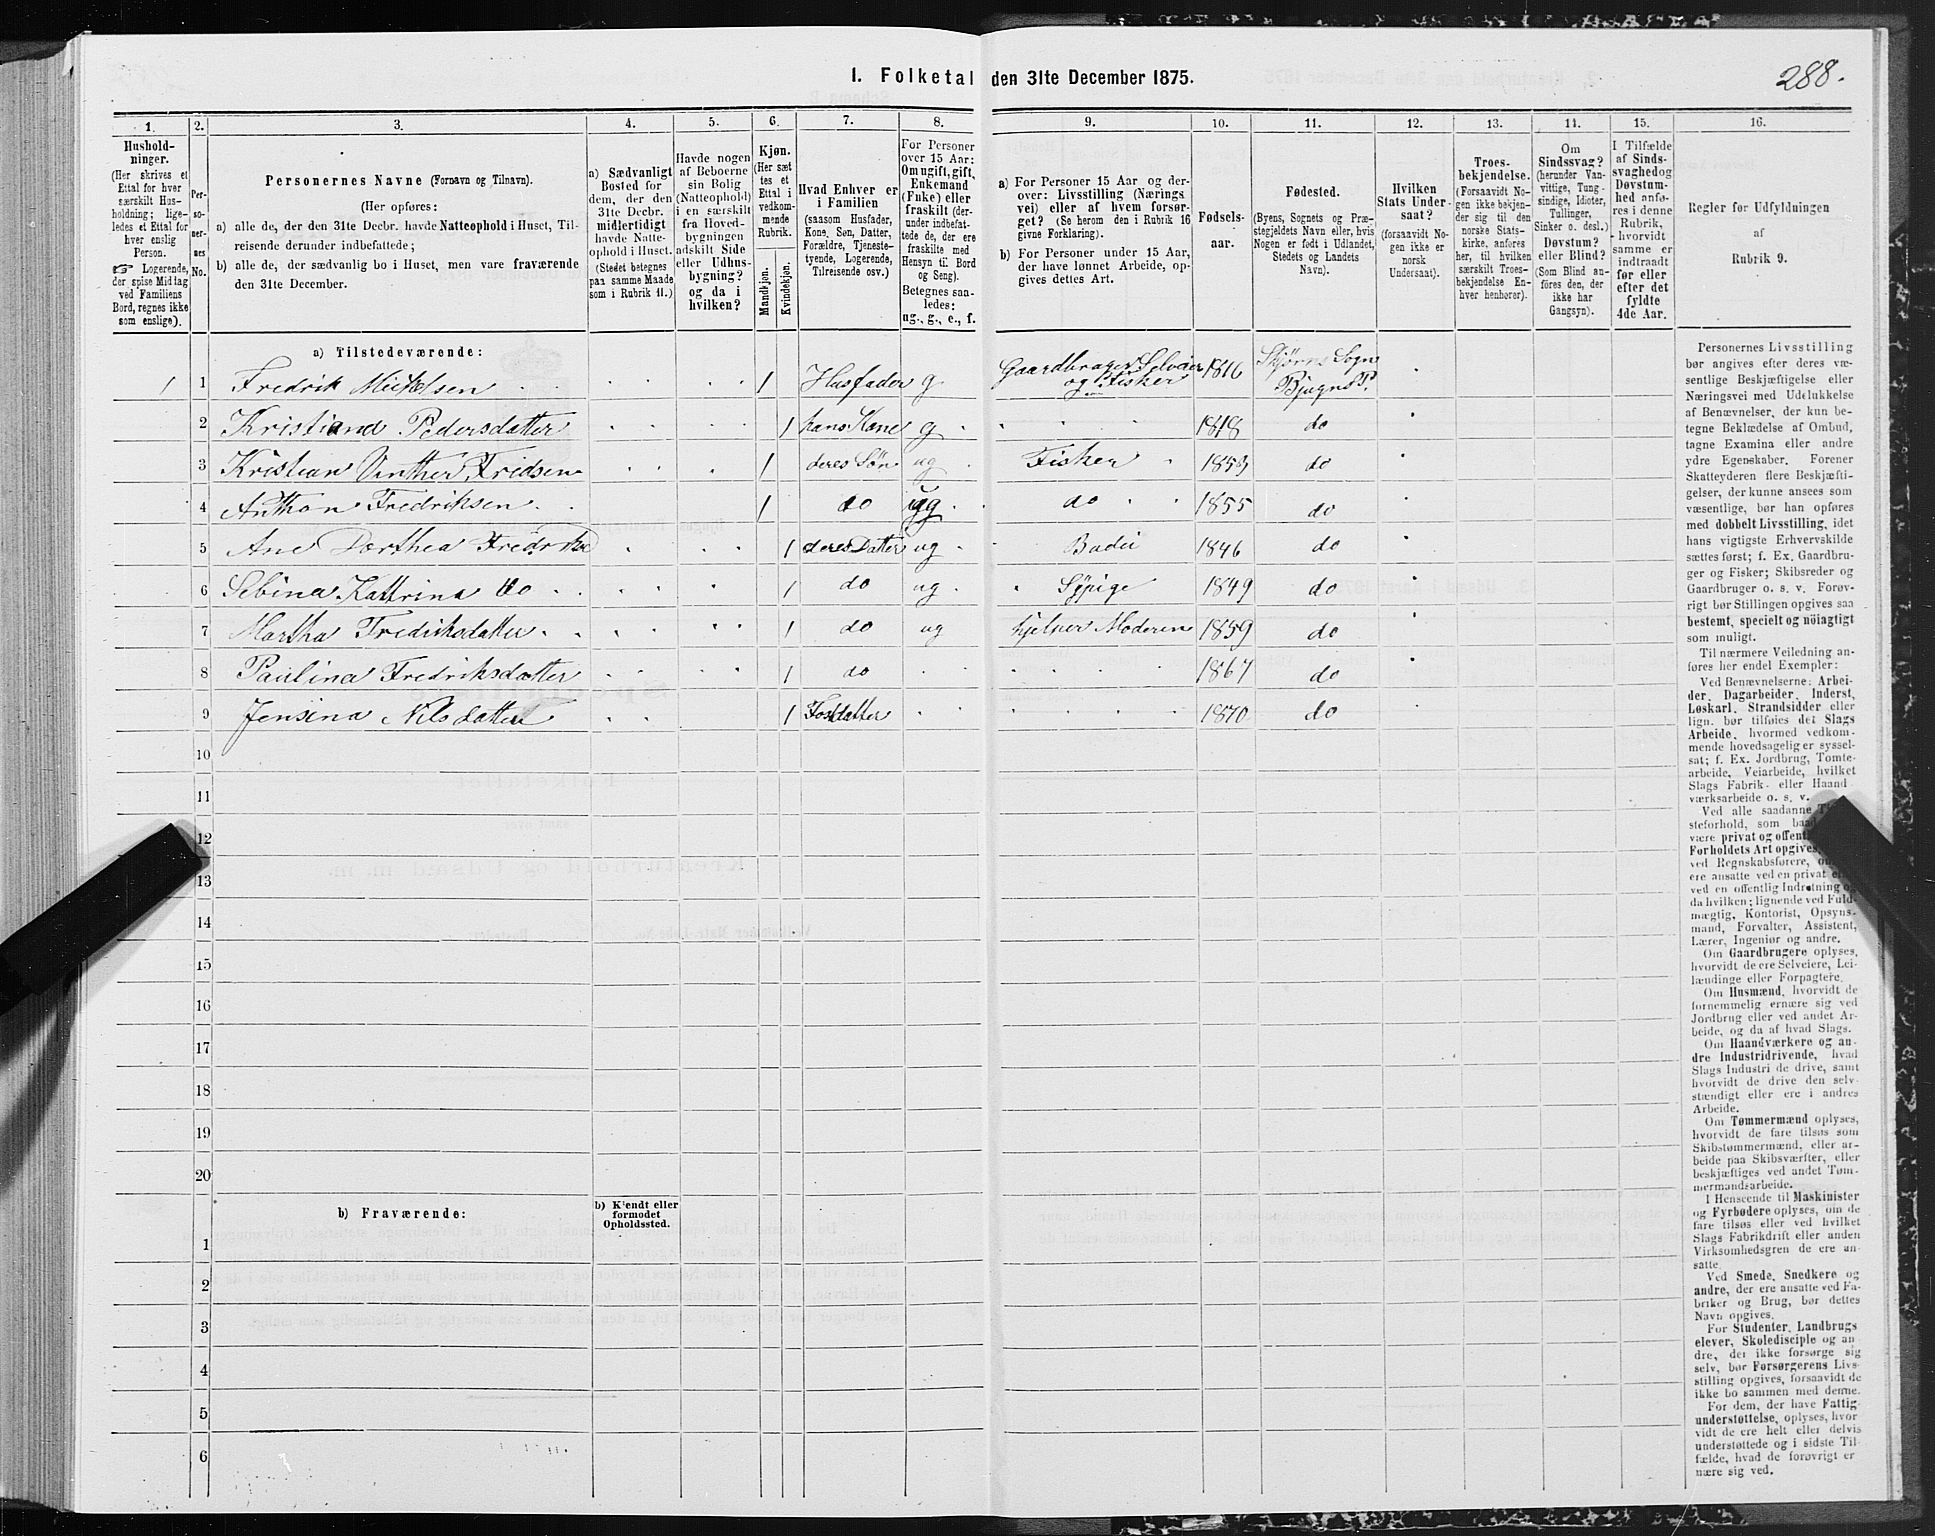 1. Folketal den 31te December 1875.
288.
1.
2.
3.
4.
5.
6.
7.
8.
9.
10.
11.
12.
13.
14.
15.
16.
Hushold-
ninger.
(Her skrives et
Ettal for hver
særskilt Hus-
holdning; lige-
ledes et Ettal for
hver enslig
Person.
☞ Logerende,
der spise Middag
ved Familiens
Bord, regnes ikke
som enslige).
Per-
so-
ner-
nes
No.
Personernes Navne (Fornavn og Tilnavn).
(Her opføres:
a) alle de, der den 31te Decbr. havde Natteophold i Huset, Til-
reisende derunder indbefattede;
b) alle de, der sædvanlig bo i Huset, men vare fraværende
den 31te December.
a) Sædvanligt
Bosted for
dem, der den
31te Decbr.
midlertidigt
havde Natte-
ophold i Huset.
(Stedet betegnes
paa samme Maade
som i Rubrik 11.)
Havde nogen
af Beboerne
sin Bolig
(Natteophold)
i en særskilt
fra Hoved-
bygningen
adskilt Side
eller Udhus-
bygning?
og da i
hvilken?
Kjøn.
(Her sæt
tes et
Ettal i
vedkom-
mende
Rubrik.
Mandkjøn.
Kvindekjøn.
Hvad Enhver er
i Familien
(saasom Husfader,
Kone, Søn, Datter,
Forældre, Tjeneste-
tyende, Logerende,
Tilreisende osv.)
For Personer
over 15 Aar:
Om ugift, gift,
Enkemand
(Enke) eller
fraskilt (der-
under indbefat-
tede de, der ere
fraskilte med
Hensyn til Bord
og Seng).
Betegnes saa-
ledes:
ug., g., e., f.
a) For Personer 15 Aar og der-
over: Livsstilling (Nærings
vei) eller af hvem forsør-
get? (Se herom den i Rubrik 16
givne Forklaring).
b) For Personer under 15 Aar,
der have lønnet Arbeide, op-
gives dettes Art.
Fødsels-
aar.
Fødested.
(Byens, Sognets og Præ-
stegjeldets Navn eller, hvis
Nogen er født i Udlandet,
Stedets og Landets
Navn).
Hvilken
Stats Under-
saat?
(forsaavidt No-
gen ikke er
norsk
Undersaat).
Troes-
bekjendelse.
(Forsaavidt No-
gen ikke bekjen-
der sig til den
norske Stats-
kirke, anføres
her, til hvilken
særskilt Troes-
bekjendelse En-
hver henhører).
Om
Sindssvag?
(herunder Van-
vittige, Tung-
sindige, Idioter,
Tullinger,
Sinker o. desl.)
Døvstum?
eller Blind?
(Som Blind an-
føres den, der
ikke har
Gangsyn).
I Tilfælde
af Sinds-
svaghed og
Døvstum-
hed anfø-
res i denne
Rubrik,
hvorvidt
samme er
indtraadt
før eller
efter det
fyldte
4de Aar.
Regler før Udfyldningen
af
Rubrik 9.
a) Tilstedeværende:
1 1 Fredrik Mickelsen 1 Husfader g Gaardbruger Selveier og Fisker 1816 Skjørns Sogn Bjugns P.
2 Kristiana Pedersdatter 1 hans Kone g 1818 do
3 Kristian Vinther Fridsen 1 deres Søn ug Fisker 1853 do
4 Anthon Fredriksen 1 do ug do 1855 do
5 Ane Dorthea Fredriksd 1 deres Datter ug Budei 1846 do
6 Sebina Kattrina do 1 do ug Sypige 1849 do
7 Martha Fredriksdatter 1 do ug hjelper Moderen 1859 do
8 Paulina Fredriksdatter 1 do 1867 do
9 Jensina Nilsdatter 1 Fosdatter 1870 do
10
11
12
13
14
15
16
17
18
19
20
b) Fraværende:
b) Kjendt eller
formodet
Opholdssted.
1
2
3
4
5
6
Personernes Livsstilling
bør angives efter deres væ-
sentlige Beskjæftigelse eller
Næringsvei med Udelukkelse
af Benævnelser, der kun be-
tegne Beklædelse af Ombud,
tagne Examina eller andre
ydre Egenskaber. Forener
Skatteyderen flere Beskjæfti-
gelser, der kunne ansees som
væsentlige, bør han opføres
med dobbelt Livsstilling, idet
hans vigtigste Erhvervskilde
sættes først; f. Ex. Gaardbru-
ger og Fisker; Skibsreder og
Gaardbruger o. s. v. Forøv-
rigt bør Stillingen opgives saa
bestemt, specielt og nöiagtigt
som muligt.
Til nærmere Veiledning an-
føres her endel Exempler:
Ved Benævnelserne: Arbei-
der, Dagarbeider, Inderst,
Løskarl, Strandsidder eller
lign. bør tilføies det Slags
Arbeide, hvormed vedkom-
mende hovedsagelig er syssel-
sat; f. Ex. Jordbrug, Tomte-
arbeide, Veiarbeide, hvilket
Slags Fabrik- eller Haand
værksarbeide o. s. v.
Ved alle saadanne
steforhold, som
være privat og
Forholdets Art opgives
ved Regnskabsførere,
ere ansatte ved en privat
ved en offentlig Indretning og
da hvilken; lignende ved Fuld-
mægtig, Kontorist, Opsyns-
mand, Forvalter, Assistent,
Lærer, Ingeniør og andre.
Om Gaardbrugere oplyses,
hvorvidt de ere Selveiere, Lei-
lændinge eller Forpagtere.
Om Husmænd, hvorvidt de
fornemmelig ernære sig ved
Jordbrug eller ved andet Ar-
beide, og da af hvad Slags.
Om Haandværkere og an-
dre Industridrivende, hvad
Slags Industri de drive, samt
hvorvidt de drive den selv-
stændigt eller ere i andres
Arbeide.
Om Tømmermænd oplyses,
hvorvidt de fare tilsøs som
Skibstømmermænd, eller ar-
beide paa Skibsværfter, eller
beskjæftiges ved andet Tøm-
mermandsarbeide.
I Henseende til Maskinister
og Fyrbødere oplyses, om de
fare tilsøs eller ved hvilket
Slags Fabrikdrift eller anden
Virksomhedsgren de ere an-
satte.
Ved Smede, Snedkere og
andre, der ere ansatte ved Fa-
briker og Brug, bør dettes
Navn opgives.
For Studenter, Landbrugs
elever, Skoledisciple og an
dre, der ikke forsørge sig
selv, bør Forsørgerens Livs-
stilling opgives, forsaavidt de
ikke bo sammen med denne.
For dem, der have Fattig-
understøttelse, oplyses, hvor
vidt de ere helt eller delvis
understøttede og i sidste Til-
fælde, hvad de forøvrigt er
nære sig ved.